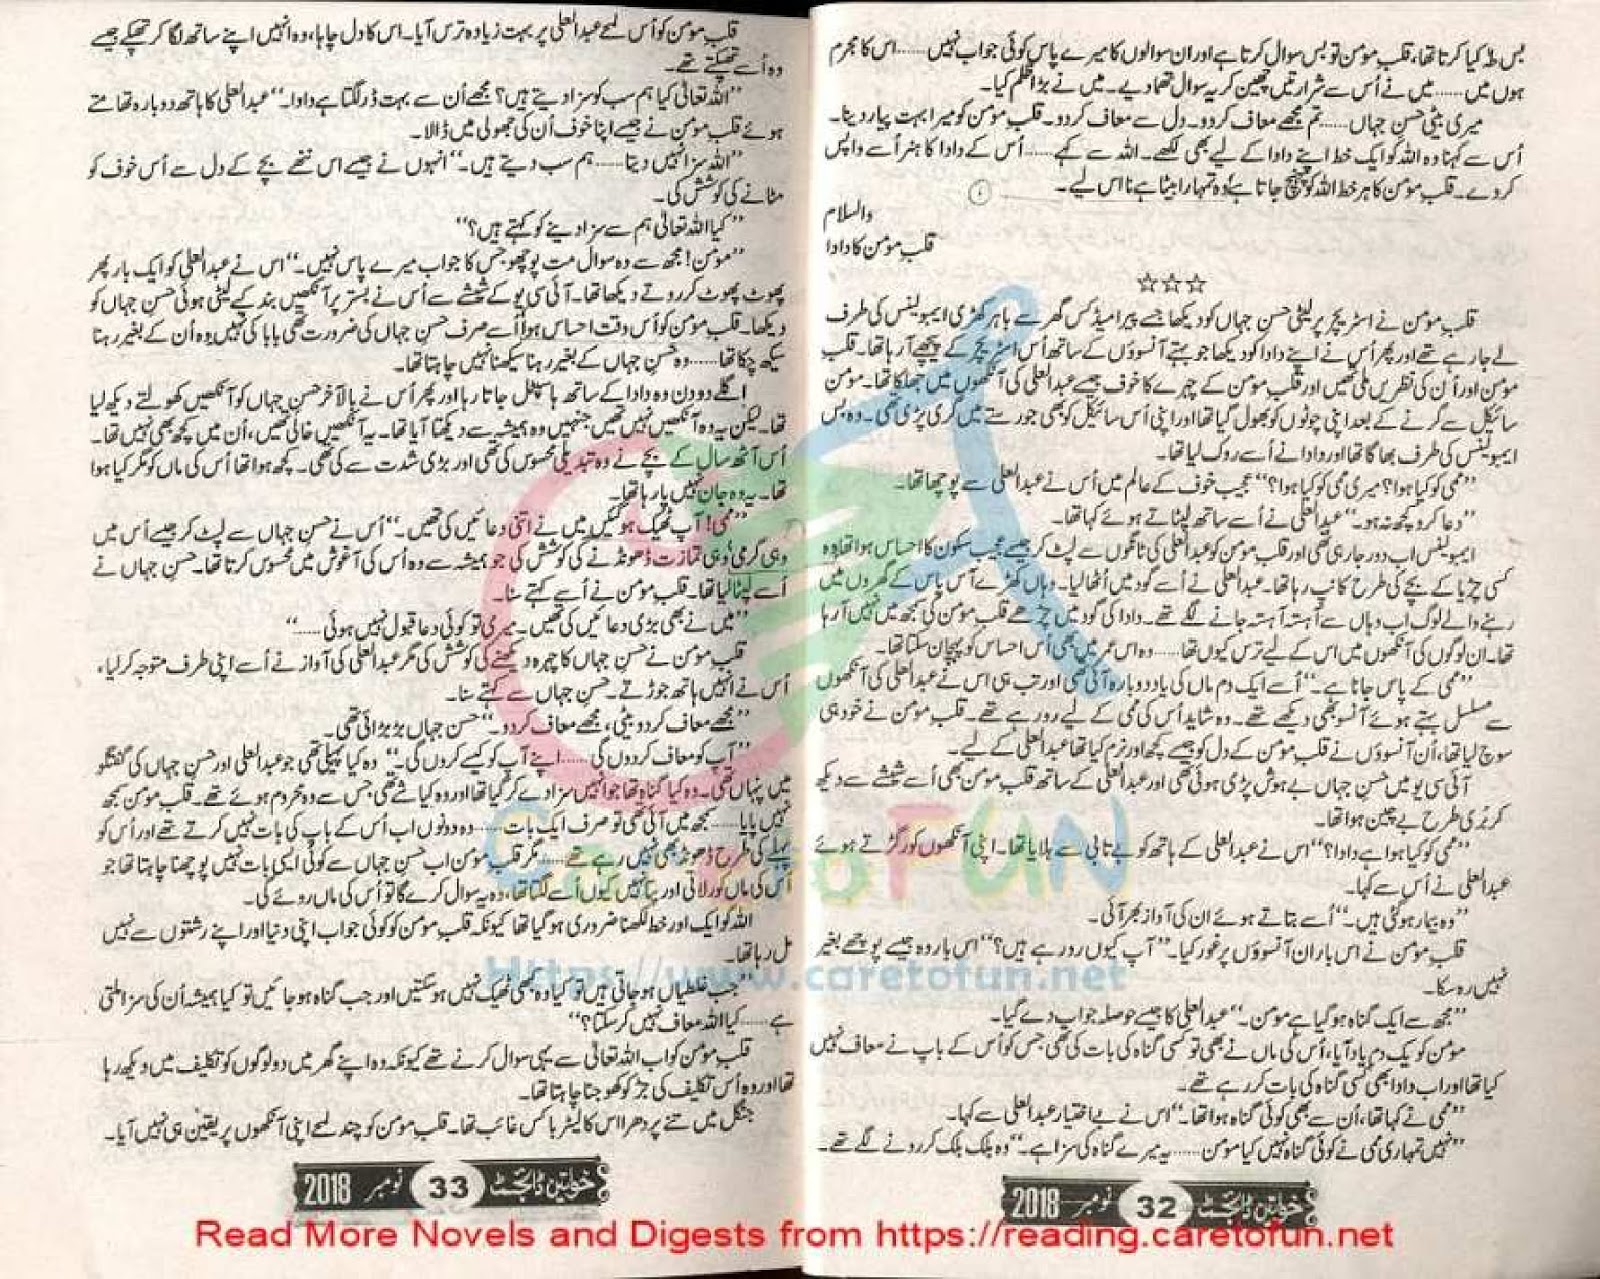 بس طے کیا کرتا تھا، قلبِ مومن تو بس سوال کرتا ہے اور ان سوالوں کا میرے پاس کوئی جواب نہیں...... اس کا مجرم
ہوں میں...... میں نے اُس سے شرارتیں چھین کر یہ سوال تھما دیے۔ میں نے بڑا ظلم کیا۔
میری بیٹی حسن جہاں...... تم مجھے معاف کردو۔ دل سے معاف کردو۔ قلبِ مومن کو میرا بہت پیار دینا۔
اُس سے کہنا وہ اللہ کو ایک خط اپنے دادا کے لیے بھی لکھے۔ اللہ سے کہے...... اُس کے دادا کا ہنر اُسے واپس
کردے۔ قلبِ مومن کا ہر خط اللہ کو پہنچ جاتا ہے، وہ تمہارا بیٹا ہے نا اس لیے۔
والسلام
قلبِ مومن کا دادا
☆☆☆
قلبِ مومن نے اسٹریچر پر لیٹی حسن جہاں کو دیکھا جسے پیرامیڈکس گھر سے باہر کھڑی ایمبولینس کی طرف
لے جارہے تھے اور پھر اُس نے اپنے دادا کو دیکھا جو بہتے آنسوؤں کے ساتھ اُس اسٹریچر کے پیچھے آرہا تھا۔ قلبِ
مومن اور اُن کی نظریں ملی تھیں اور قلبِ مومن کے چہرے کا خوف جیسے عبدالعلی کی آنکھوں میں جھلکا تھا۔ مومن
سائیکل سے گرنے کے بعد اپنی چوٹوں کو بھول گیا تھا اور اپنی اُس سائیکل کو بھی جو رستے میں گری پڑی تھی۔ وہ بس
ایمبولینس کی طرف بھاگا تھا اور دادا نے اُسے روک لیا تھا۔
”ممی کو کیا ہوا؟ میری ممی کو کیا ہوا؟“ عجیب خوف کے عالم میں اُس نے عبدالعلی سے پوچھا تھا۔
”دعا کرو کچھ نہ ہو۔“ عبدالعلی نے اُسے ساتھ لپٹاتے ہوئے کہا تھا۔
ایمبولینس اب دور جارہی تھی اور قلبِ مومن کو عبدالعلی کی ٹانگوں سے لپٹ کر جیسے عجیب سکون کا احساس ہوا تھا، وہ
کسی چڑیا کے بچے کی طرح کانپ رہا تھا۔ عبدالعلی نے اُسے گود میں اُٹھا لیا۔ وہاں کھڑے آس پاس کے گھروں میں
رہنے والے لوگ اب وہاں سے آہستہ آہستہ جانے لگے تھے۔ دادا کی گود میں چڑھے قلبِ مومن کی سمجھ میں نہیں آرہا
تھا۔ ان لوگوں کی آنکھوں میں اس کے لیے ترس کیوں تھا...... وہ اس عمر میں بھی اُس احساس کو پہچان سکتا تھا۔
”ممی کے پاس جانا ہے۔“ اُسے ایک دم ماں کی یاد دوبارہ آئی تھی اور تب ہی اس نے عبدالعلی کی آنکھوں
سے مسلسل بہتے ہوئے آنسو بھی دیکھے تھے۔ وہ شاید اُس کی ممی کے لیے رو رہے تھے۔ قلبِ مومن نے خود ہی
سوچ لیا تھا، اُن آنسوؤں نے قلبِ مومن کے دل کو جیسے کچھ اور نرم کیا تھا عبدالعلی کے لیے۔
آئی سی یو میں حسن جہاں بے ہوش پڑی ہوئی تھی اور عبدالعلی کے ساتھ قلبِ مومن بھی اُسے شیشے سے دیکھ
کر بُری طرح بے چین ہوا تھا۔
”ممی کو کیا ہوا ہے دادا؟“ اس نے عبدالعلی کے ہاتھ کو بے تابی سے ہلایا تھا۔ اپنی آنکھوں کو رگڑتے ہوئے
عبدالعلی نے اُس سے کہا۔
”وہ بیمار ہوگئی ہیں۔“ اُسے بتاتے ہوئے ان کی آواز بھر آئی۔
قلبِ مومن نے اس بار ان آنسوؤں پر غور کیا۔ ”آپ کیوں رو رہے ہیں؟“ اس بار وہ جیسے پوچھے بغیر
نہیں رہ سکا۔
”مجھ سے ایک گناہ ہوگیا ہے مومن۔“ عبدالعلی کا جیسے حوصلہ جواب دے گیا۔
مومن کو یک دم یاد آیا، اُس کی ماں نے بھی تو کسی گناہ کی بات کی تھی جس کو اُس کے باپ نے معاف نہیں
کیا تھا اور اب دادا بھی کسی گناہ کی بات کررہے تھے۔
”ممی نے کہا تھا، اُن سے بھی کوئی گناہ ہوا تھا۔“ اس نے بے اختیار عبدالعلی سے کہا۔
”نہیں تمہاری ممی نے کوئی گناہ نہیں کیا مومن...... یہ میرے گناہ کی سزا ہے۔“ وہ بلک بلک کر رونے لگے تھے۔
خواتین ڈائجسٹ 32 نومبر 2018
قلبِ مومن کو اُس لمحے عبدالعلی پر بہت زیادہ ترس آیا۔ اس کا دل چاہا، وہ انہیں اپنے ساتھ لگا کر تھپکے جیسے
وہ اُسے تھپکتے تھے۔
”اللہ تعالیٰ کیا ہم سب کو سزا دیتے ہیں؟ مجھے اُن سے بہت ڈر لگتا ہے دادا۔“ عبدالعلی کا ہاتھ دوبارہ تھامتے
ہوئے قلبِ مومن نے جیسے اپنا خوف اُن کی جھولی میں ڈالا۔
”اللہ سزا نہیں دیتا...... ہم سب دیتے ہیں۔“ انہوں نے جیسے اس ننھے بچے کے دل سے اُس خوف کو
مٹانے کی کوشش کی۔
”کیا اللہ تعالیٰ ہم سے سزا دینے کو کہتے ہیں؟“
”مومن! مجھ سے وہ سوال مت پوچھو جس کا جواب میرے پاس نہیں۔“ اس نے عبدالعلی کو ایک بار پھر
پھوٹ پھوٹ کر روتے دیکھا تھا۔ آئی سی یو کے شیشے سے اُس نے بستر پر آنکھیں بند کیے لیٹی ہوئی حسن جہاں کو
دیکھا۔ قلبِ مومن کو اُس وقت احساس ہوا اُسے صرف حسن جہاں کی ضرورت تھی بابا کی نہیں وہ اُن کے بغیر رہنا
سیکھ چکا تھا...... وہ حسن جہاں کے بغیر رہنا سیکھنا نہیں چاہتا تھا۔
اگلے دو دن وہ دادا کے ساتھ ہاسپٹل جاتا رہا اور پھر اُس نے بالآخر حسن جہاں کو آنکھیں کھولتے دیکھ لیا
تھا۔ لیکن یہ وہ آنکھیں نہیں تھیں جنہیں وہ ہمیشہ سے دیکھتا آیا تھا۔ یہ آنکھیں خالی تھیں، اُن میں کچھ بھی نہیں تھا۔
اُس آٹھ سال کے بچے نے وہ تبدیلی محسوس کی تھی اور بڑی شدت سے کی تھی۔ کچھ ہوا تھا اُس کی ماں کو مگر کیا ہوا
تھا۔ یہ وہ جان نہیں پارہا تھا۔
”ممی! آپ ٹھیک ہوگئیں میں نے اتنی دعائیں کی تھیں۔“ اُس نے حسن جہاں سے لپٹ کر جیسے اُس میں
وہی گرمی، وہی تمازت ڈھونڈنے کی کوشش کی جو ہمیشہ سے وہ اُس کی آغوش میں محسوس کرتا تھا۔ حسن جہاں نے
اُسے لپٹا لیا تھا۔ قلبِ مومن نے اُسے کہتے سنا۔
”میں نے بھی بڑی دعائیں کی تھیں۔ میری تو کوئی دعا قبول نہیں ہوئی......“
قلبِ مومن نے حسن جہاں کا چہرہ دیکھنے کی کوشش کی مگر عبدالعلی کی آواز نے اُسے اپنی طرف متوجہ کرلیا،
اُس نے انہیں ہاتھ جوڑتے۔ حسن جہاں سے کہتے سنا۔
”مجھے معاف کردو بیٹی، مجھے معاف کردو۔“ حسن جہاں بڑبڑائی تھی۔
”آپ کو معاف کردوں گی...... اپنے آپ کو کیسے کروں گی۔“ وہ کیا پہیلی تھی جو عبدالعلی اور حسن جہاں کی گفتگو
میں پنہاں تھی۔ وہ کیا گناہ تھا جو انہیں سزا دے کر گیا تھا اور وہ کیا شے تھی جس سے وہ محروم ہوئے تھے۔ قلبِ مومن سمجھ
نہیں پایا...... سمجھ میں آئی تھی تو صرف ایک بات...... وہ دونوں اب اُس کے باپ کی بات نہیں کرتے تھے اور اُس کو
پہلے کی طرح ڈھونڈ بھی نہیں رہے تھے...... مگر قلبِ مومن اب حسن جہاں سے کوئی ایسی بات نہیں پوچھنا چاہتا تھا جو
اُس کی ماں کو رلاتی اور پتا نہیں کیوں اُسے لگتا تھا، وہ یہ سوال کرے گا تو اُس کی ماں روئے گی۔
اللہ کو ایک اور خط لکھنا ضروری ہوگیا تھا کیونکہ قلبِ مومن کو کوئی جواب اپنی دنیا اور اپنے رشتوں سے نہیں
مل رہا تھا۔
”جب غلطیاں ہوجاتی ہیں تو کیا وہ کبھی ٹھیک نہیں ہوسکتیں اور جب گناہ ہوجائیں تو کیا ہمیشہ اُن کی سزا ملتی
ہے...... کیا اللہ معاف نہیں کرسکتا؟“
قلبِ مومن کو اب اللہ تعالیٰ سے یہی سوال کرنے تھے کیونکہ وہ اپنے گھر میں دو لوگوں کو تکلیف میں دیکھ رہا
تھا اور وہ اُس تکلیف کی جڑ کو کھوجنا چاہتا تھا۔
جنگل میں تنے پر دھرا اس کا لیٹر باکس غائب تھا۔ قلبِ مومن کو چند لمحے اپنی آنکھوں پر یقین ہی نہیں آیا۔
خواتین ڈائجسٹ 33 نومبر 2018
CaretoFUN
Https://www.caretofun.net
Read More Novels and Digests from https://reading.caretofun.net